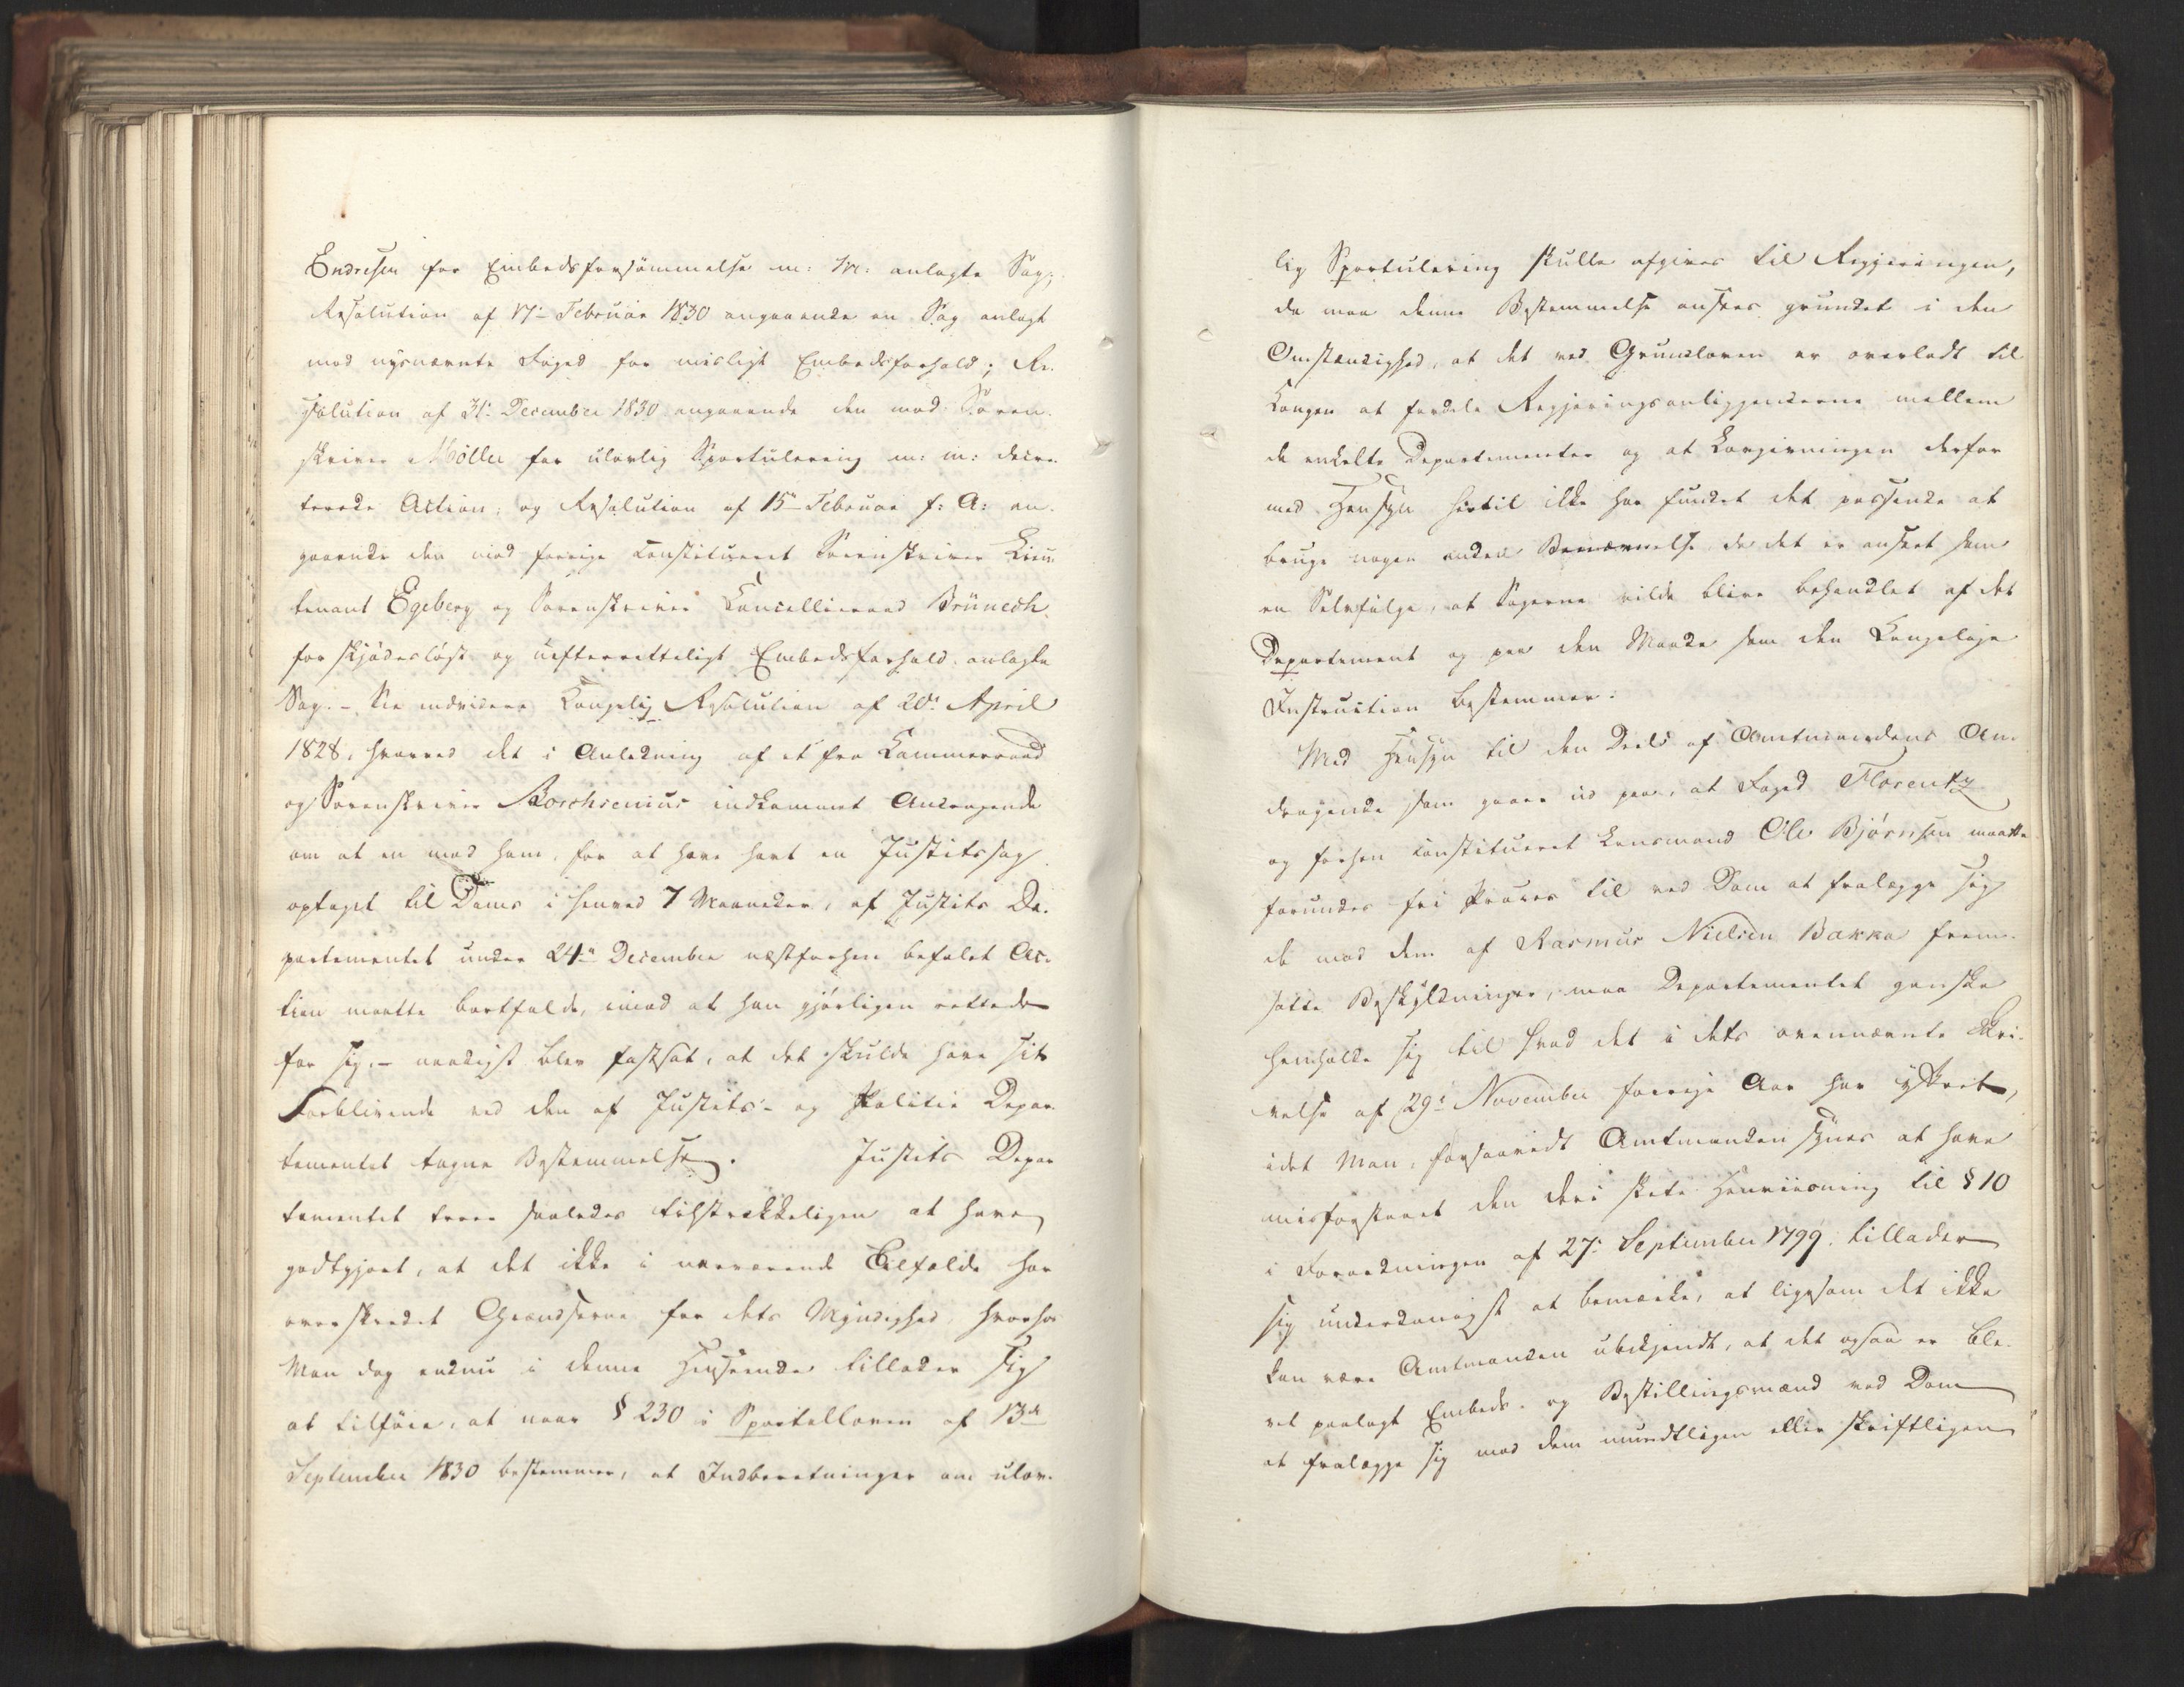 Endresen for Embedsforsömmelse m: M: anlagte Sag;
Resolution af 17de Februar 1830 angaaende en Sag anlagt
mod nysnævnte Foged for misligt Embedsforhold; Re-
solution af 31: December 1830 angaaende den mod Soren-
skriver Möller for ulovlig Sportulering m: m: decre-
terede Action; og Resolution af 15de Februar f: A: an-
gaaende den mod forrige constitueret Sorenskriver Lieu-
tenant Egeberg og Sorenskriver Cancellieraad Brünech
for skjödeslöst og uefterretteligt Embedsforhold anlagte
Sag. – See endvidere Kongelig Resolution af 20de April
1828, hvorved det i Anledning af et fra Kammerraad
og Sorenskriver Borchsenius indkommet Andragende
om at en mod ham, for at have havt en Justitssag
optaget til Doms i henved 7 Maaneder, af Justits De-
partementet under 24de December næstforhen befalet Ac-
tion maatte bortfalde, imod at han gjörligen rettede
for sig, – naadigst blev fastsat, at det skulde have sit
Forblivende ved den af Justits- og Politie Depar-
tementet tagne Bestemmelse. Justits Depar-
tementet troer saaledes tilstrækkeligen at have
godtgjort, at det ikke i nærværende Tilfælde har
overskredet Grændserne for dets Myndighed, hvorhos
Man dog endnu i denne Henseende tillader sig
at tilföie, at naar § 230 i Sportelloven af 13de
September 1830 bestemmer, at Indberetninger om ulov-
lig Sportulering skulle afgives til Regjeringen,
da maa denne Bestemmelse ansees grundet i den
Omstændighed, at det ved Grundloven er overladt til
Kongen at fordele Regjeringsanliggenderne mellem
de enkelte Departementer og at Lovgivningen derfor
med Hensyn hertil ikke har fundet det passende at
bruge nogen anden Benævnelse, da det er anseet som
en Selvfölge, at Sagerne vilde blive behandlet af det
Departement og paa den Maade som den Kongelige
Instruction bestemmer.
Med Hensyn til den Deel af Amtmandens An-
dragende som gaaer ud paa, at Foged Florentz
og forhen constitueret Lensmand Ole Björnsen maatte
forundes fri Proces til ved Dom at fralægge sig
de mod dem af Rasmus Nielsen Bakka frem-
satte Beskyldninger, maa Departementet ganske
henholde sig til hvad det i dets ovennævnte Skri-
velse af 29de November forrige Aar har yttret,
idet Man, forsaavidt Amtmanden synes at have
misforstaaet den deri skete Henviisning til § 10
i Forordningen af 27de September 1799, tillader
sig underdanigst at bemærke, at ligesom det ikke
kan være Amtmanden ubekjendt, at det ogsaa er ble-
vet paalagt Embeds- og Bestillingsmænd ved Dom
at fralægge sig mod dem mundtligen eller skriftligen